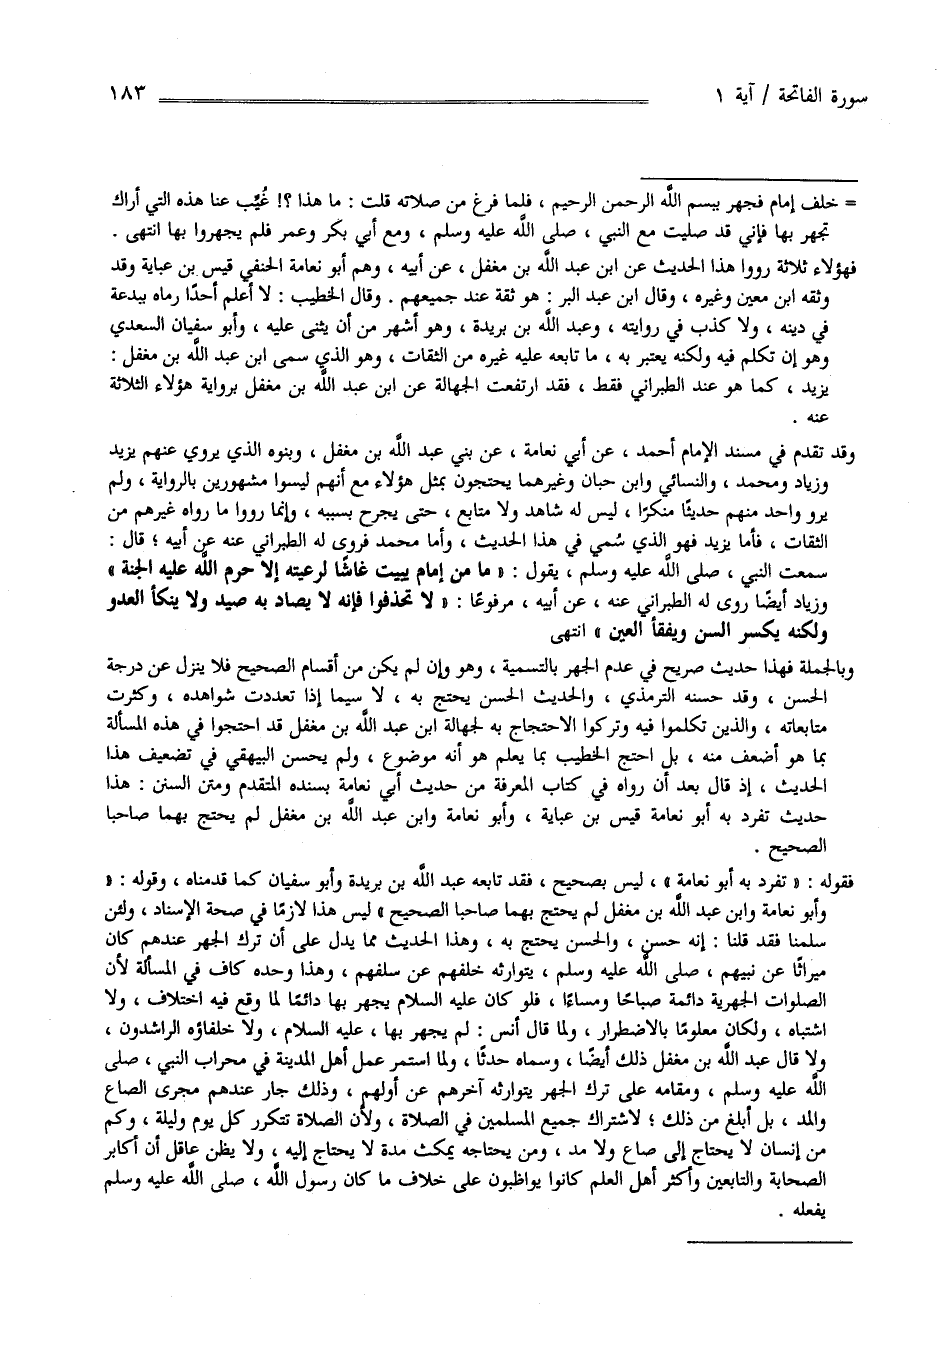 سورة الفاتحة / آية ١ ١٨٣
= خلف إمام فجهر ببسم اللَّه الرحمن الرحيم ، فلما فرغ من صلاته قلت : ما هذا ؟! غُيِّب عنا هذه التي أراك
تجهر بها فإني قد صليت مع النبي ، صلى اللَّه عليه وسلم ، ومع أبي بكر وعمر فلم يجهروا بها انتهى .
فهؤلاء ثلاثة رووا هذا الحديث عن ابن عبد اللَّه بن مغفل ، عن أبيه ، وهم أبو نعامة الحنفي قيس بن عباية وقد
وثقه ابن معين وغيره ، وقال ابن عبد البر : هو ثقة عند جميعهم . وقال الخطيب : لا أعلم أحدًا رماه ببدعة
في دينه ، ولا كذب في روايته ، وعبد اللَّه بن بريدة ، وهو أشهر من أن يثنى عليه ، وأبو سفيان السعدي
وهو إن تكلم فيه ولكنه يعتبر به ، ما تابعه عليه غيره من الثقات ، وهو الذي سمى ابن عبد اللَّه بن مغفل :
يزيد ، كما هو عند الطبراني فقط ، فقد ارتفعت الجهالة عن ابن عبد اللَّه بن مغفل برواية هؤلاء الثلاثة
عنه .
وقد تقدم في مسند الإمام أحمد ، عن أبي نعامة ، عن بني عبد اللَّه بن مغفل ، وبنوه الذي يروي عنهم يزيد
وزياد ومحمد ، والنسائي وابن حبان وغيرهما يحتجون بمثل هؤلاء مع أنهم ليسوا مشهورين بالرواية ، ولم
يرو واحد منهم حديثًا منكرًا ، ليس له شاهد ولا متابع ، حتى يجرح بسببه ، وإنما رووا ما رواه غيرهم من
الثقات ، فأما يزيد فهو الذي سُمي في هذا الحديث ، وأما محمد فروى له الطبراني عنه عن أبيه ؛ قال :
سمعت النبي ، صلى اللَّه عليه وسلم ، يقول : « ما من إمام يبيت غاشًا لرعيته إلا حرم اللَّه عليه الجنة »
وزياد أيضًا روى له الطبراني عنه ، عن أبيه ، مرفوعًا : « لا تحذفوا فإنه لا يصاد به صيد ولا ينكأ العدو
ولكنه يكسر السن ويفقأ العين » انتهى
وبالجملة فهذا حديث صريح في عدم الجهر بالتسمية ، وهو وإن لم يكن من أقسام الصحيح فلا ينزل عن درجة
الحسن ، وقد حسنه الترمذي ، والحديث الحسن يحتج به ، لا سيما إذا تعددت شواهده ، وكثرت
متابعاته ، والذين تكلموا فيه وتركوا الاحتجاج به لجهالة ابن عبد اللَّه بن مغفل قد احتجوا في هذه المسألة
بما هو أضعف منه ، بل احتج الخطيب بما يعلم هو أنه موضوع ، ولم يحسن البيهقي في تضعيف هذا
الحديث ، إذ قال بعد أن رواه في كتاب المعرفة من حديث أبي نعامة بسنده المتقدم ومتن السنن : هذا
حديث تفرد به أبو نعامة قيس بن عباية ، وأبو نعامة وابن عبد اللَّه بن مغفل لم يحتج بهما صاحبا
الصحيح .
فقوله : « تفرد به أبو نعامة » ، ليس بصحيح ، فقد تابعه عبد اللَّه بن بريدة وأبو سفيان كما قدمناه ، وقوله : «
وأبو نعامة وابن عبد اللَّه بن مغفل لم يحتج بهما صاحبا الصحيح » ليس هذا لازمًا في صحة الإسناد ، ولئن
سلمنا فقد قلنا : إنه حسن ، والحسن يحتج به ، وهذا الحديث مما يدل على أن ترك الجهر عندهم كان
ميراثًا عن نبيهم ، صلى اللَّه عليه وسلم ، يتوارثه خلفهم عن سلفهم ، وهذا وحده كاف في المسألة لأن
الصلوات الجهرية دائمة صباحًا ومساءًا ، فلو كان عليه السلام يجهر بها دائمًا لما وقع فيه اختلاف ، ولا
اشتباه ، ولكان معلومًا بالاضطرار ، ولما قال أنس : لم يجهر بها ، عليه السلام ، ولا خلفاؤه الراشدون ،
ولا قال عبد اللَّه بن مغفل ذلك أيضًا ، وسماه حدثًا ، ولما استمر عمل أهل المدينة في محراب النبي ، صلى
اللَّه عليه وسلم ، ومقامه على ترك الجهر يتوارثه آخرهم عن أولهم ، وذلك جار عندهم مجرى الصاع
والمد ، بل أبلغ من ذلك ؛ لاشتراك جميع المسلمين في الصلاة ، ولأن الصلاة تتكرر كل يوم وليلة ، وكم
من إنسان لا يحتاج إلى صاع ولا مد ، ومن يحتاجه يمكث مدة لا يحتاج إليه ، ولا يظن عاقل أن أكابر
الصحابة والتابعين وأكثر أهل العلم كانوا يواظبون على خلاف ما كان رسول اللَّه ، صلى اللَّه عليه وسلم
يفعله .